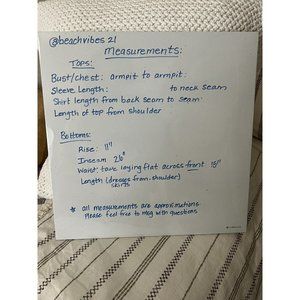 @beachvibes 21
Measurements:
Tops:
Bust/chest: armpit to armpit:
Sleeve Length: to neck seam
Shirt length from back seam to seam:
Length of top from shoulder
Bottoms:
Rise: 11"
Inseam 26"
Waist: tape laying flat across front 15"
Length (dresses from shoulder)
skirts
* all measurements are approximations
Please feel free to msg with questions